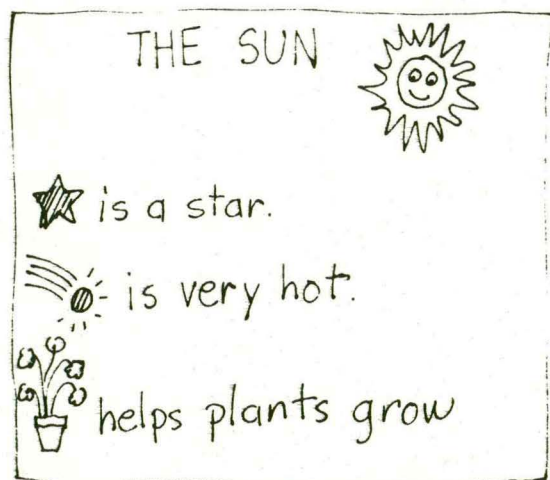 THE SUN
is a star.
is very hot.
helps plants grow